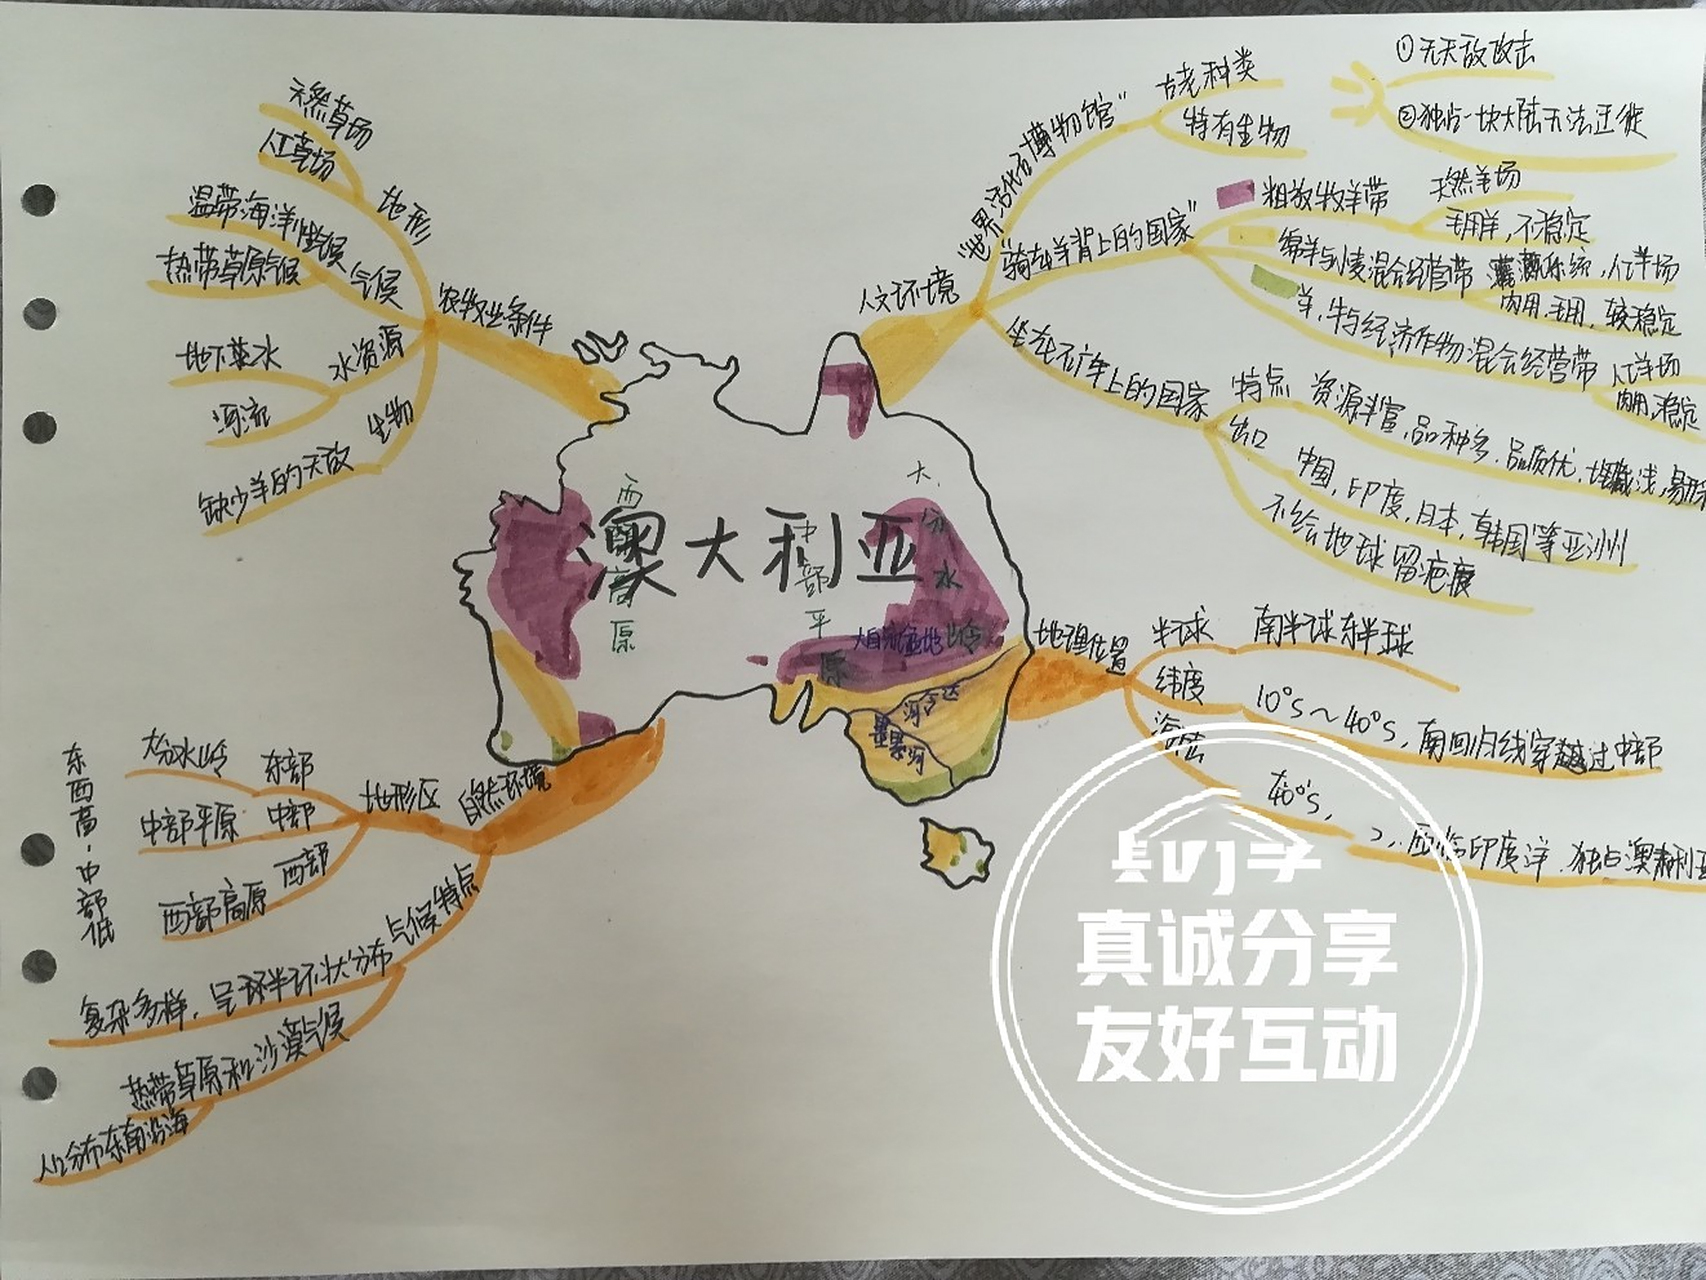 天然草场
人工草场
地形
温带海洋性气候
热带草原气候
气候
农牧业条件
地下蓄水
水资源
河流
生物
缺少羊的天敌
"世界活化石博物馆"
古老种类
特有生物
①无天敌攻击
②独占一块大陆无法迁徙
人文环境
"骑在羊背上的国家"
粗放牧羊带
天然羊场
毛用羊,不稳定
绵羊与小麦混合经营带
人工羊场
肉用.毛用,较稳定
羊,牛与经济作物混合经营带
人工羊场
肉用,稳定
坐在矿车上的国家
特点
资源丰富,品种多.品质优.埋藏浅,易
出口
中国,印度,日本,韩国等亚洲
不给地球留疤痕
澳大利亚
西部高原
中部平原
大分水岭
大自流盆地
河令达
墨累河
地理位置
半球
南半球东半球
纬度
10°S~40°S,南回归线穿越过中部
海陆
40°S,
西临印度洋.独占澳大利亚
自然环境
地形区
东部
大分水岭
中部
中部平原
西部
西部高原
东西高,中部低
气候特点
复杂多样,呈环半环状分布
热带草原和沙漠气候
人口分布东南沿海
真诚分享
友好互动